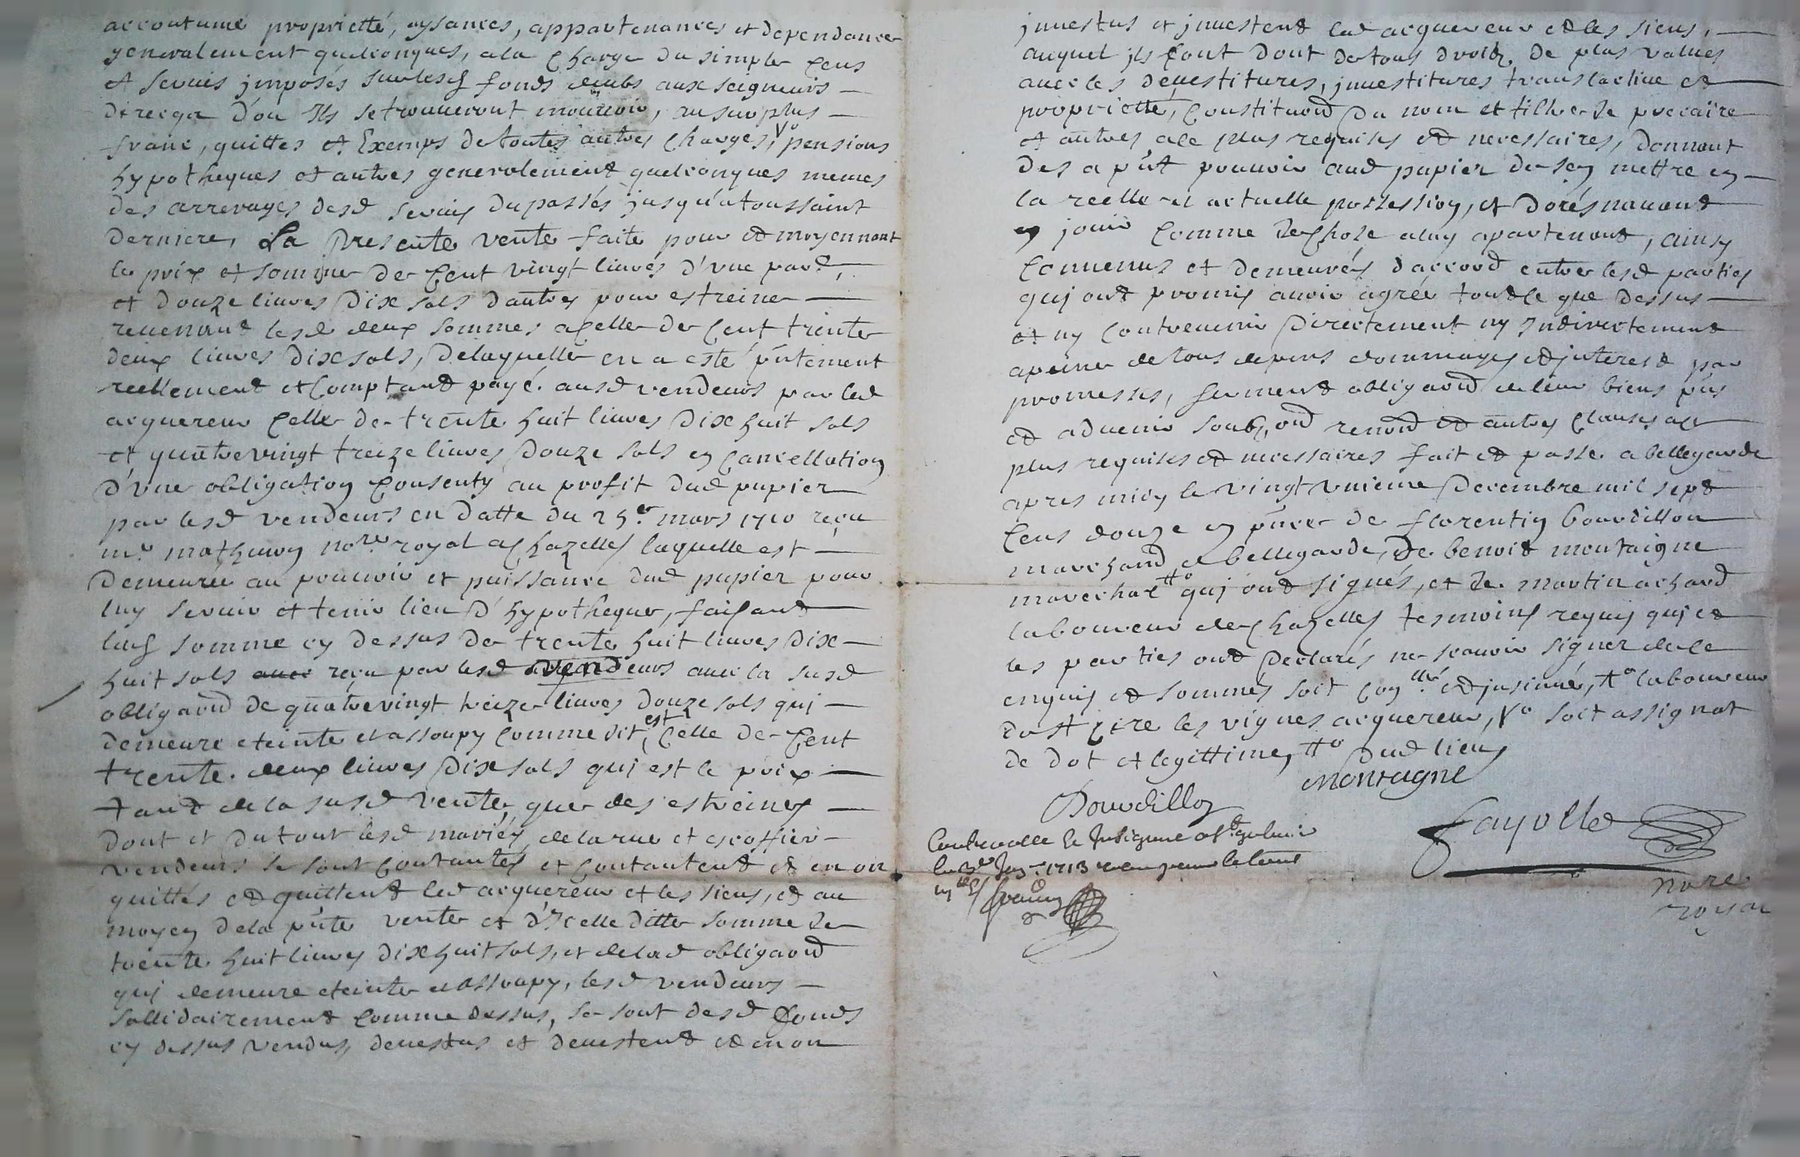 accoutume proprietté, aysances, appartenances et dependances
generalement quelconques, a la charge du simple cens
et servis jmposés sur lesd fonds deubs aux seigneurs
d'ou Ils se trouveront mouvoir, au surplus
franc, quittes et Exemps de toutes autres charges, Vo pensions
hypotheques et autres generalement quelconques memes
des arrerages desd servis du passés jusqu'a toussaint
derniere, La presente vente faite pour et moyennant
le prix et somme de cent vingt livres d'une part,
et douze livres dix sols d'autres pour estreines
revenant lesd deux sommes a celle de cent trente
deux livres dix sols, de laquelle en a esté pntement
reellement et comptant payé ausd vendeurs par led
acquereur celle de trente huit livres dix huit sols
et quatre vingt treize livres douze sols en cancellation
d'une obligation consenty au profit dud papier
par lesd vendeurs en datte du 25e mars 1710 reçu
me mathevon nore royal a chazelles laquelle est
demeurée au pouvoir et puissance dud papier pour
luy servir et tenir lieu d'hypotheque, faisant
lad somme cy dessus de trente huit livres dix
huit sols reçu par lesd vendeurs avec la susd
obligaon de quatre vingt treize livres douze sols qui
demeure eteinte et assoupy comme dit est, celle de cent
trente deux livres dix sols qui est le prix
tant de la susd vente que des estreines
dont et du tout lesd mariés delarue et escoffier
vendeurs se sont contantés et contantent et en on
quittés et quittent led acquereur et les siens, et au
moyen de la pnte vente et d'Icelle ditte somme de
trente huit livres dix huit sols, et de lad obligaon
qui demeure eteinte et assoupy, lesd vendeurs
sollidairement comme dessus, se sont desd fonds
cy dessus vendus, devestus et devestent et en on
jnvestus et jnvestent led acquereur et les siens,
auquel ils font dont de tous droits de plus values
avec les devestitures, jnvestitures translactive de
proprietté, constituon du nom et tiltre de precaire
et autres a ce plus requises et necessaires, donnant
des a pnt pouvoir aud papier de s'en mettre en
la reelle et actuelle possession, et d'orésnavant
en jouir comme de chose a luy apartenant, ainsy
convenus et demeurés d'accord entre lesd parties
qui ont promis avoir agrée tout ce que dessus
et ny contrevenir directement ny Indirectement
a peine de tous depens dommages et jnterest par
promesses, serment obligaon de leur biens pns
et advenir soub, on renon et autres clauses a ce
plus requises et necessaires fait et passé a bellegarde
apres midy le vingt unieme decembre mil sept
cens douze en pnce de florentin bourdillon
marchand a bellegarde, de benoit montaigne
marechal tto qui ont signés, et de martin achard
laboureur de chazelles tesmoins requis qui et
les parties ont declarés ne scavoir signer de ce
enquis et sommés soit conllé et jnsinué, tto laboureur
de st cire les vignes acquereur, Vo soit assignat
de dot et legittime, tto dud lieu
Montagne
Bourdillon
Fayolle
Controllé et Insignué a st galmier
le 3e Jer 1713 reçu pour le tout
nore
royal